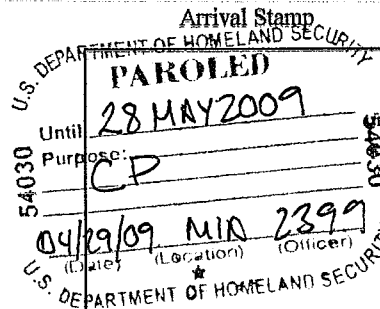 Arrival Stamp
U.S. DEPARTMENT OF HOMELAND SECURITY
PAROLED
Until 28 MAY 2009
Purpose: CP
54030
54030
04/29/09 MIA 2399
(Date) (Location) (Officer)
U.S. DEPARTMENT OF HOMELAND SECURITY